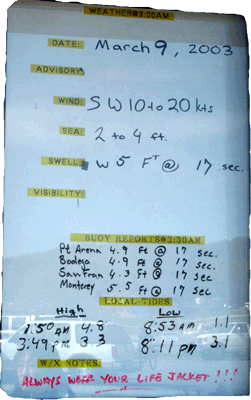 WEATHER@3:00AM
DATE: March 9, 2003
ADVISORY:
WIND: SW 10 to 20 kts
SEA: 2 to 4 ft.
SWELL: W 5 FT @ 17 sec.
VISIBILITY:
BUOY REPORTS@3:30AM
Pt. Arena 4.9 Ft @ 17 sec.
Bodega 4.9 Ft @ 17 sec.
San Fran 4.3 ft @ 17 sec.
Monterey 5.5 ft @ 17 sec.
LOCAL TIDES
High Low
1:50 AM 4.8 8:53 AM 1.1
3:49 pm 3.3 8:11 pm 3.1
W/X NOTES:
ALWAYS WEAR YOUR LIFE JACKET!!!